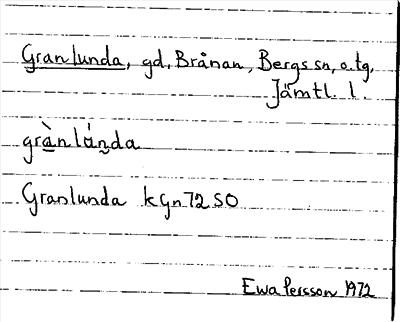 Granlunda, gd, Brånan, Bergs sn, o. tg,
Jämtl. l.
grànlúnda
Granlunda kGn72 SO
Ewa Persson 1972